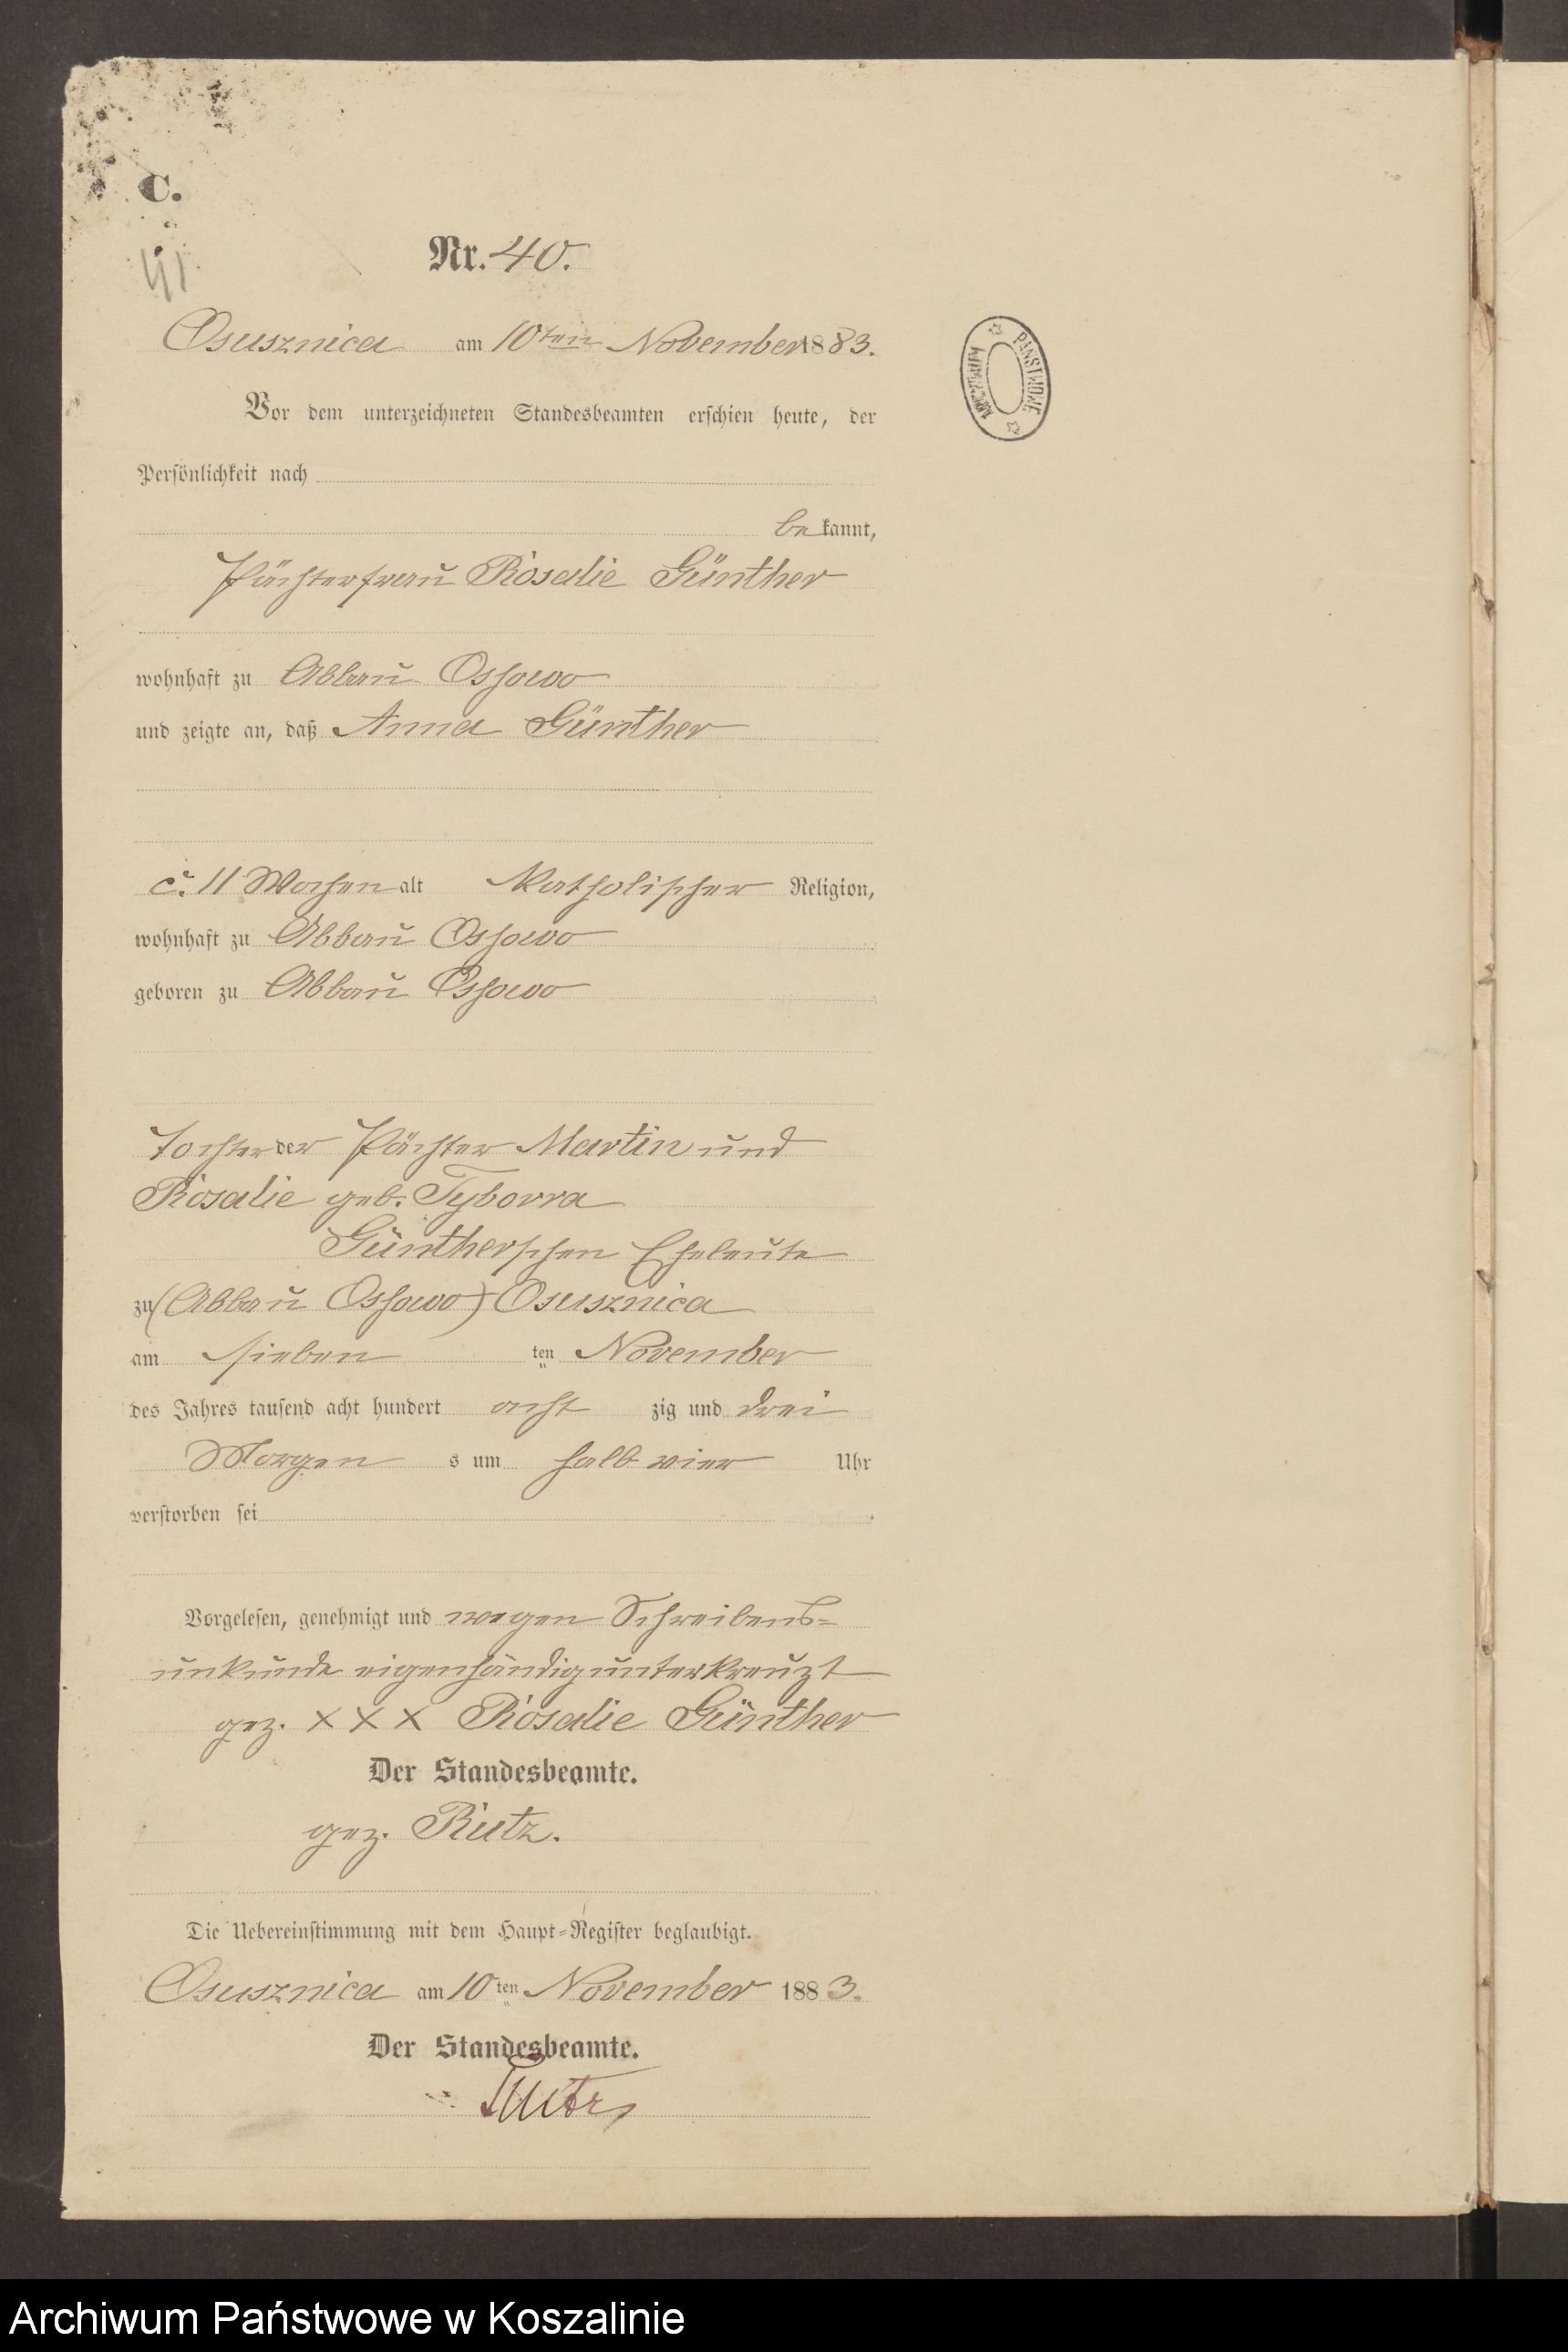 C.
41.
Nr. 40.
Osusznica am 10ten November 1883.
Vor dem unterzeichneten Standesbeamten erschien heute, der
Persönlichkeit nach
be kannt,
Pächterfrau Rosalie Günther
wohnhaft zu Abbau Ossowo
und zeigte an, daß Anna Günther
c. 11 Wochen alt Katholischer Religion,
wohnhaft zu Abbau Ossowo
geboren zu Abbau Ossowo
Tochter der Pächter Martin und
Rosalie geb. Tyborra
Günther'schen Eheleute
zu (Abbau Ossowo) Osusznica
am sieben ten November
des Jahres tausend acht hundert acht zig und drei
Morgen s um halb vier Uhr
verstorben sei.
Vorgelesen, genehmigt und wegen Schreibens=
unkunde eigenhändig unterkreuzt
gez. X X X Rosalie Günther
Der Standesbeamte.
gez. Rutz.
Die Uebereinstimmung mit dem Haupt=Register beglaubigt.
Osusznica am 10 ten November 1883.
Der Standesbeamte.
Rutz
PAŃSTWOWE
Archiwum Państwowe w Koszalinie